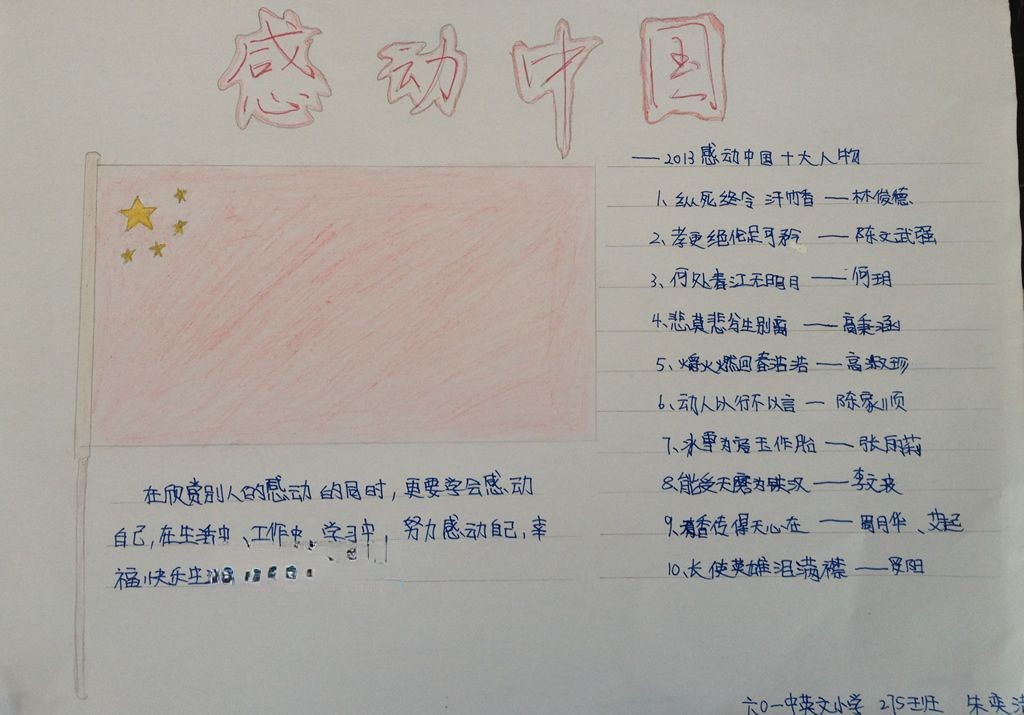 感动中国
——2013感动中国十大人物
1、纵死终令汗巾香——林俊德
2、孝更绝伦足可矜——陈文武强
3、何处春江无明月——何玥
4、悲莫悲兮生别离——高秉涵
5、爝火燃回春浩浩——高淑珍
6、动人以行不以言—陈家顺
7、冰雪为容玉作胎——张丽莉
8、能受天磨为铁汉——李文波
9、清香传得天心在——周月华、艾起
10、长使英雄泪满襟——罗阳
在欣赏别人的感动的同时，更要学会感动
自己，在生活中、工作中、学习中，努力感动自己，幸
福快乐生
六〇一中英文小学 2(5)班 朱奕